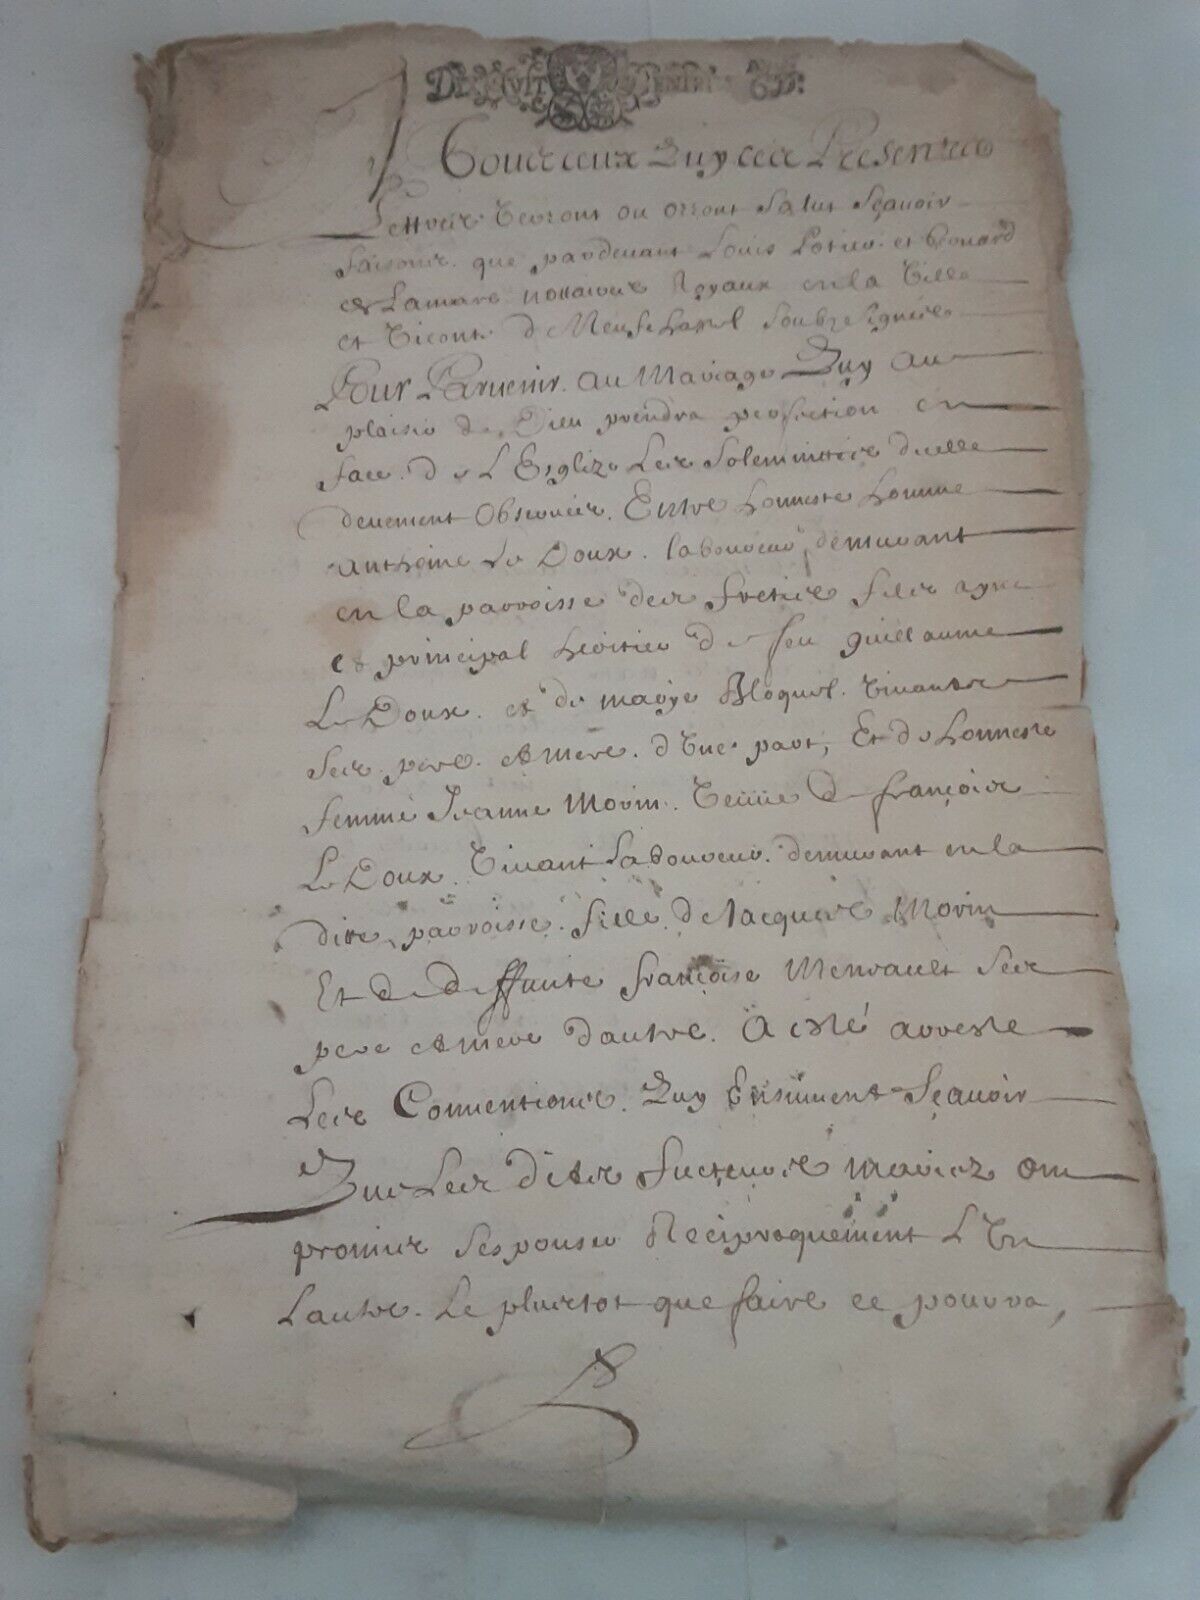 A Tous ceux Quy ces Presentes
Lettres Verront ou orront Salut Sçauoir
faisons que pardeuant Louis Potier et
de Lamare nottaires Royaux en la Ville
et Viconté de Neufchastel Soubzsignés
Pour Paruenir au Mariage Quy au
plaisir de Dieu prendra perfection en
face de L'Esglize Les Solemnittés dicelle
deuement Obseruées Entre Honneste homme
anthoine Le Doux laboureur demeurant
en la parroisse des fretiés filz ayné
et principal heritier de feu guillaume
Le Doux et de marye Bloquel Viuantz
Ses pere et mere d'Vne part, Et de Honneste
femme Jeanne Morin Veuue de françois
Le Doux Viuant Laboureur demeurant en la
ditte parroisse fille de Jacques Morin
Et de deffunte françoise Menrault Ses
pere et mere dautre A esté arresté
Les Conuentions Quy Ensuiuent Sçauoir
Que Les dits futeurs mariez ont
promis Sespouser Reciproquement L'Vn
Lautre Le plustost que faire ce pourra,